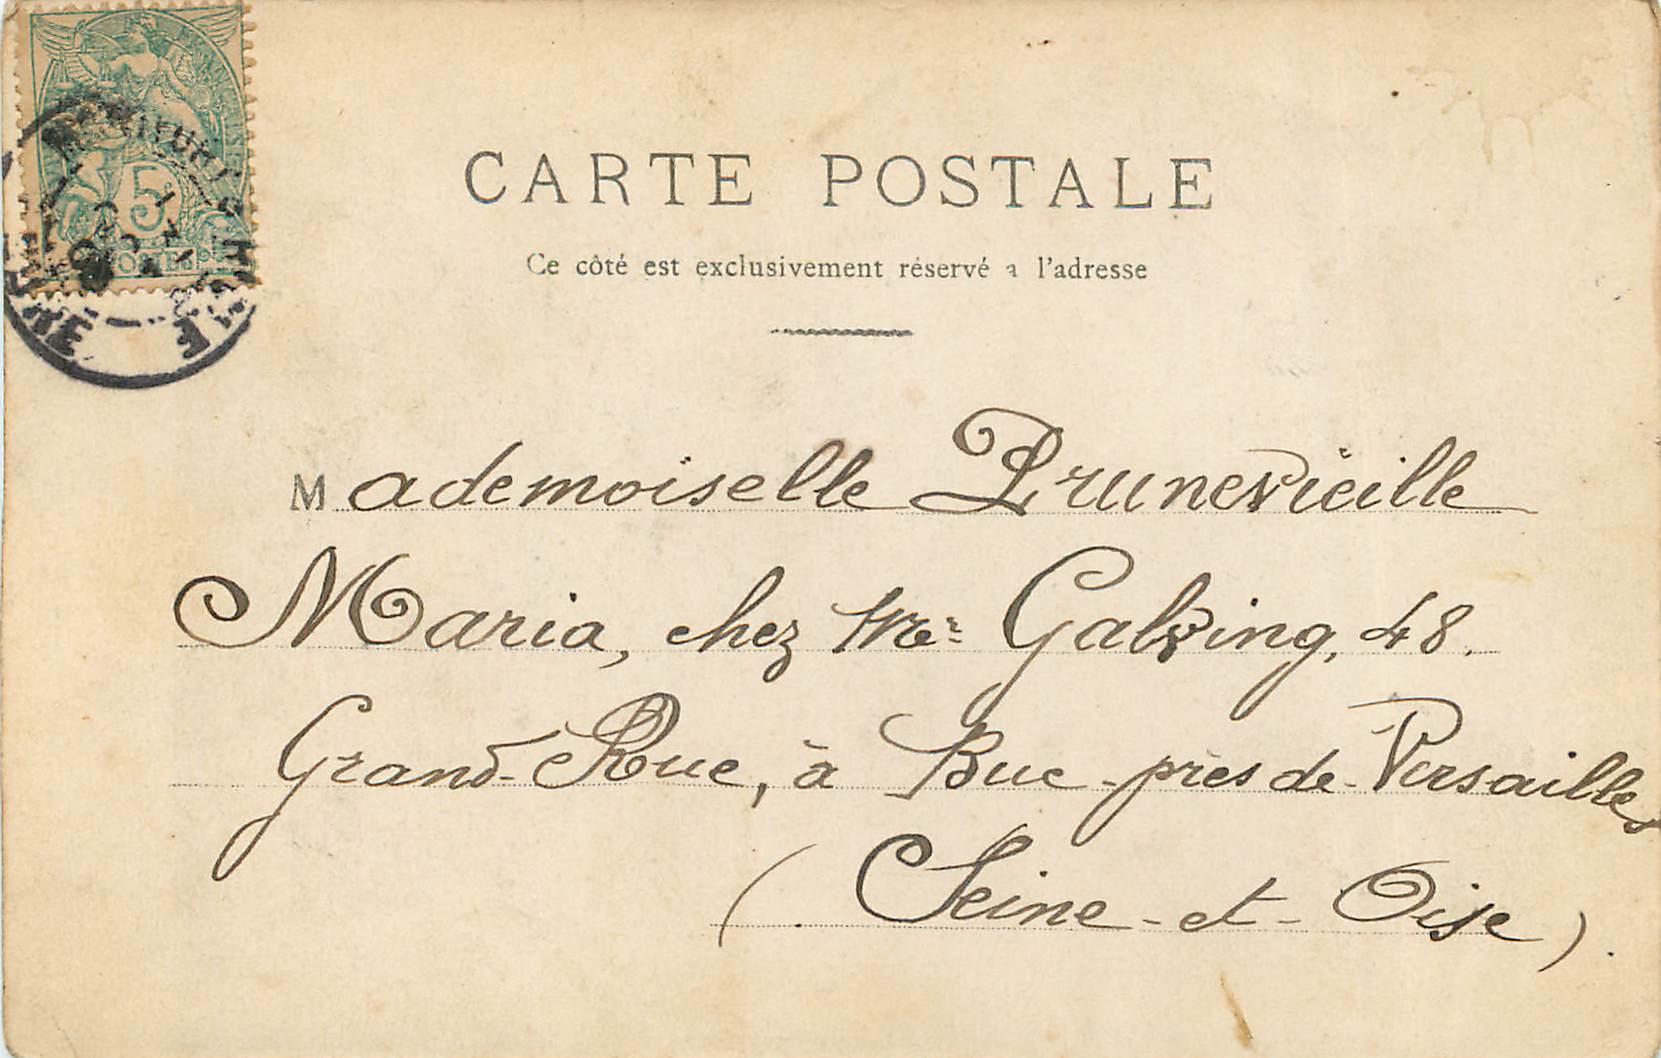 5
POSTES
CARTE POSTALE
Ce côté est exclusivement réservé a l'adresse
Mademoiselle Prunevieille
Maria, chez Mr Galving, 48.
Grand-Rue, à Buc-près de-Versailles
(Seine-et-Oise).